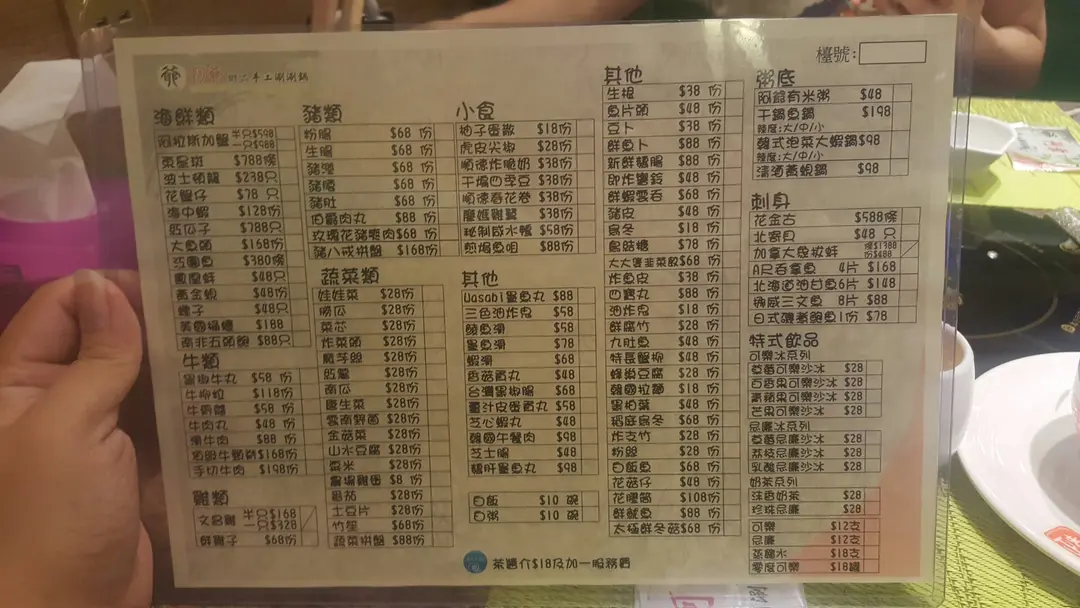 檯號:
手工涮涮鍋
海鮮類
阿拉斯加蟹 半只$598
一只$988
東星斑 $788條
波士頓龍 $238只
花蟹仔 $78 只
海中蝦 $128份
$788只
大魚頭 $168份
$380條
鳳凰蚌 $48只
黃金蜆 $48份
蟶子 $48只
$188
南非五頭鮑 $88只
牛類
黑椒牛丸 $58 份
牛柳粒 $118份
$58 份
牛肉丸 $48 份
滑牛肉 $88 份
$168份
手切牛肉 $198份
雞類
文昌雞 半只$168
一只$328
鮮雞子 $68份
豬類
粉腸 $68 份
生腸 $68 份
豬潤 $68 份
豬腰 $68 份
豬肚 $68 份
伯爵肉丸 $88 份
玫瑰花豬頸肉$68 份
豬八戒拼盤 $168份
蔬菜類
娃娃菜 $28份
勝瓜 $28份
菜芯 $28份
炸菜頭 $28份
$28份
$28份
南瓜 $28份
唐生菜 $28份
雲南野菌 $28份
金菇菜 $28份
山水豆腐 $28份
粟米 $28份
農場雞蛋 $8 份
番茄 $28份
土豆片 $28份
竹笙 $68份
蔬菜拼盤 $88份
小食
柚子蛋散 $18份
虎皮尖椒 $28份
順德炸脆奶 $38份
干煸四季豆 $38份
順德春花卷 $38份
$38份
秘制咸水鴨 $58份
煎焗魚咀 $88份
其他
Wasabi墨魚丸 $88
三色油炸鬼 $58
鯪魚滑 $58
墨魚滑 $78
蝦滑 $68
香菇貢丸 $48
台灣黑椒腸 $68
薑汁皮蛋貢丸 $58
芝心蝦丸 $48
韓國午餐肉 $98
芝士腸 $48
鵝肝墨魚丸 $98
白飯 $10 碗
白粥 $10 碗
其他
生根 $38 份
魚片頭 $48 份
豆卜 $38 份
鮮魚卜 $88 份
新鮮鴨腸 $88 份
即炸響鈴 $48 份
鮮蝦雲吞 $68 份
豬皮 $48 份
烏冬 $18 份
$78 份
大大隻韭菜餃$68 份
炸魚皮 $38 份
四寶丸 $88 份
油炸鬼 $18 份
鮮腐竹 $28 份
九肚魚 $48 份
特長蟹柳 $48 份
蜂巢豆腐 $28 份
韓國拉麵 $18 份
黑柏葉 $48 份
稻庭烏冬 $68 份
炸支竹 $28 份
粉絲 $28 份
白飯魚 $68 份
花菇仔 $48 份
花膠筒 $108份
鮮魷魚 $88 份
太極鮮冬菇$68 份
粥底
阿爺有米粥 $48
干鍋魚鍋 $198
辣度:大/中/小
韓式泡菜大蝦鍋$98
辣度:大/中/小
清酒黃蜆鍋 $98
刺身
花金古 $588條
北寄貝 $48 只
加拿大象拔蚌 條$1388
份$488
A尺吞拿魚 4片 $168
北海道油甘魚6片 $148
挪威三文魚 8片 $88
日式磯煮鮑魚1份 $78
特式飲品
可樂冰系列
草莓可樂沙冰 $28
百香果可樂沙冰 $28
青蘋果可樂沙冰 $28
芒果可樂沙冰 $28
忌廉冰系列
草莓忌廉沙冰 $28
荔枝忌廉沙冰 $28
乳酸忌廉沙冰 $28
奶茶系列
沫香奶茶 $28
珍珠忌廉 $28
可樂 $12支
忌廉 $12支
蒸餾水 $18支
零度可樂 $18罐
茶醬介$18及加一服務費